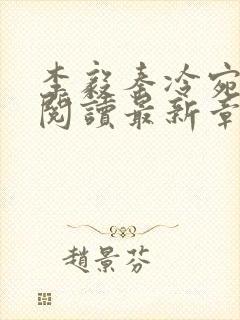 李毅秦冷宛
閱讀最新章
趙景芬